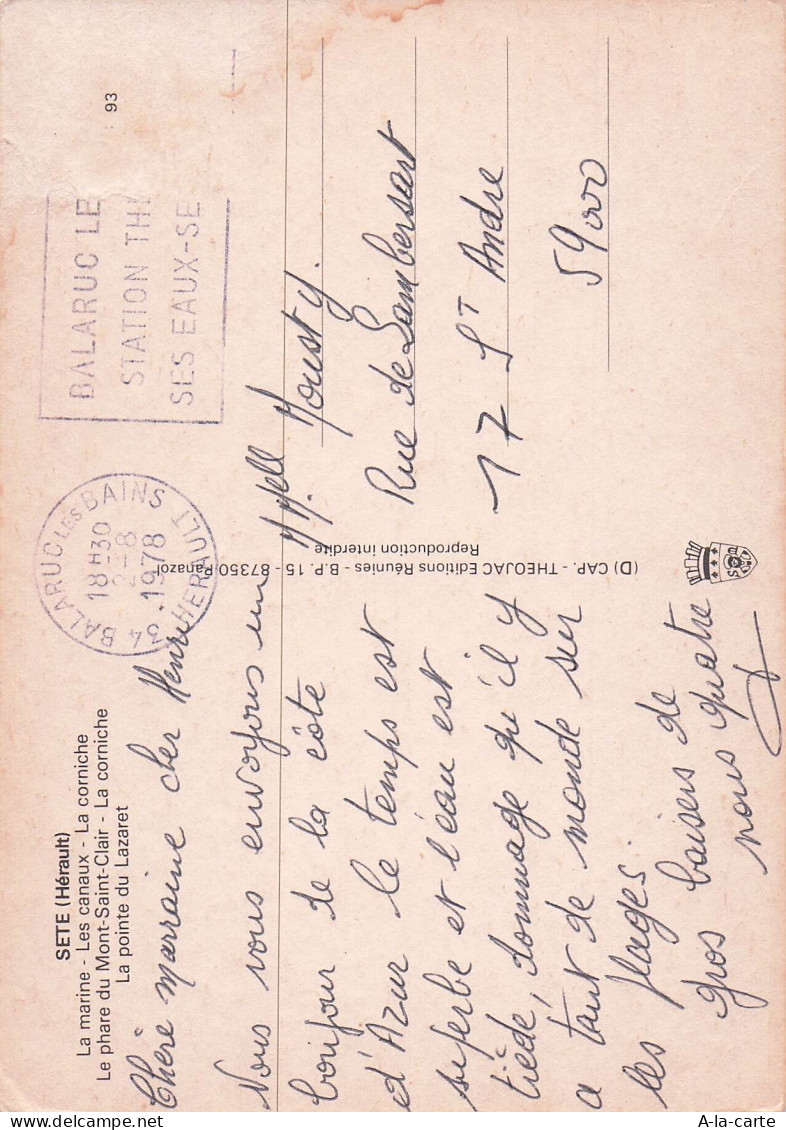 SETE (Hérault)
La marine - Les canaux - La corniche
Le phare du Mont-Saint-Clair - La corniche
La pointe du Lazaret
93
34 BALARUC LES BAINS
18 H30
2-8
1978
HERAULT
BALARUC LE
STATION THE
SES EAUX-SE
Chère marraine cher Henri
Nous vous envoyons un
bonjour de la côte
d'Azur le temps est
superbe et l'eau est
tiède, dommage qu'il y
a tant de monde sur
les plages.
gros baisers de
nous quatre
(D) CAP. - THEOJAC Editions Réunies - B.P. 15 - 87350 Panazol
Reproduction interdite
Mousty.
Rue de Lambersart
17 St André
59000
A-la-carte